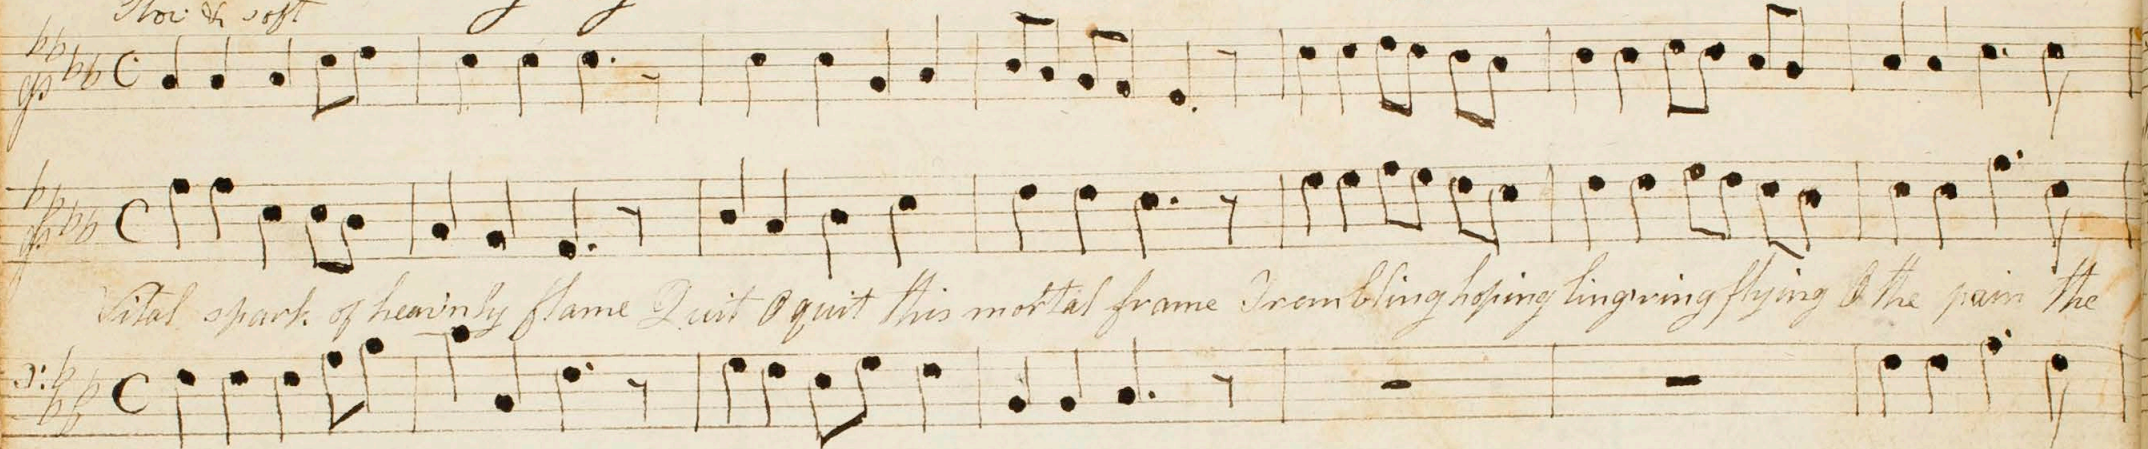 Slow & soft
Vital spark of heav'nly flame Quit O quit this mortal frame Trembling hoping ling'ring flying O the pain the